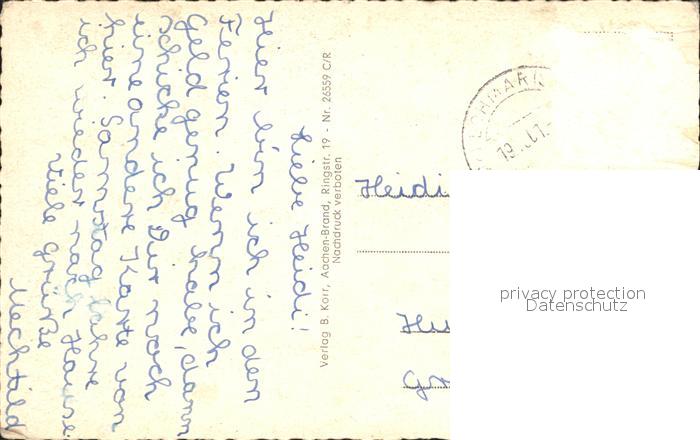 Liebe Heidi!
Hier bin ich in den
Ferien. Wenn ich
Geld genug habe, dann
schicke ich Dir noch
eine andere Karte von
hier. Samstag fahre
ich wieder nach Hause.
Viele Grüße
Mechtild
Verlag B. Korr, Aachen-Brand, Ringstr. 19 - Nr. 26559 C/R
Nachdruck verboten
19. JUL.
Heidi
privacy protection
Datenschutz